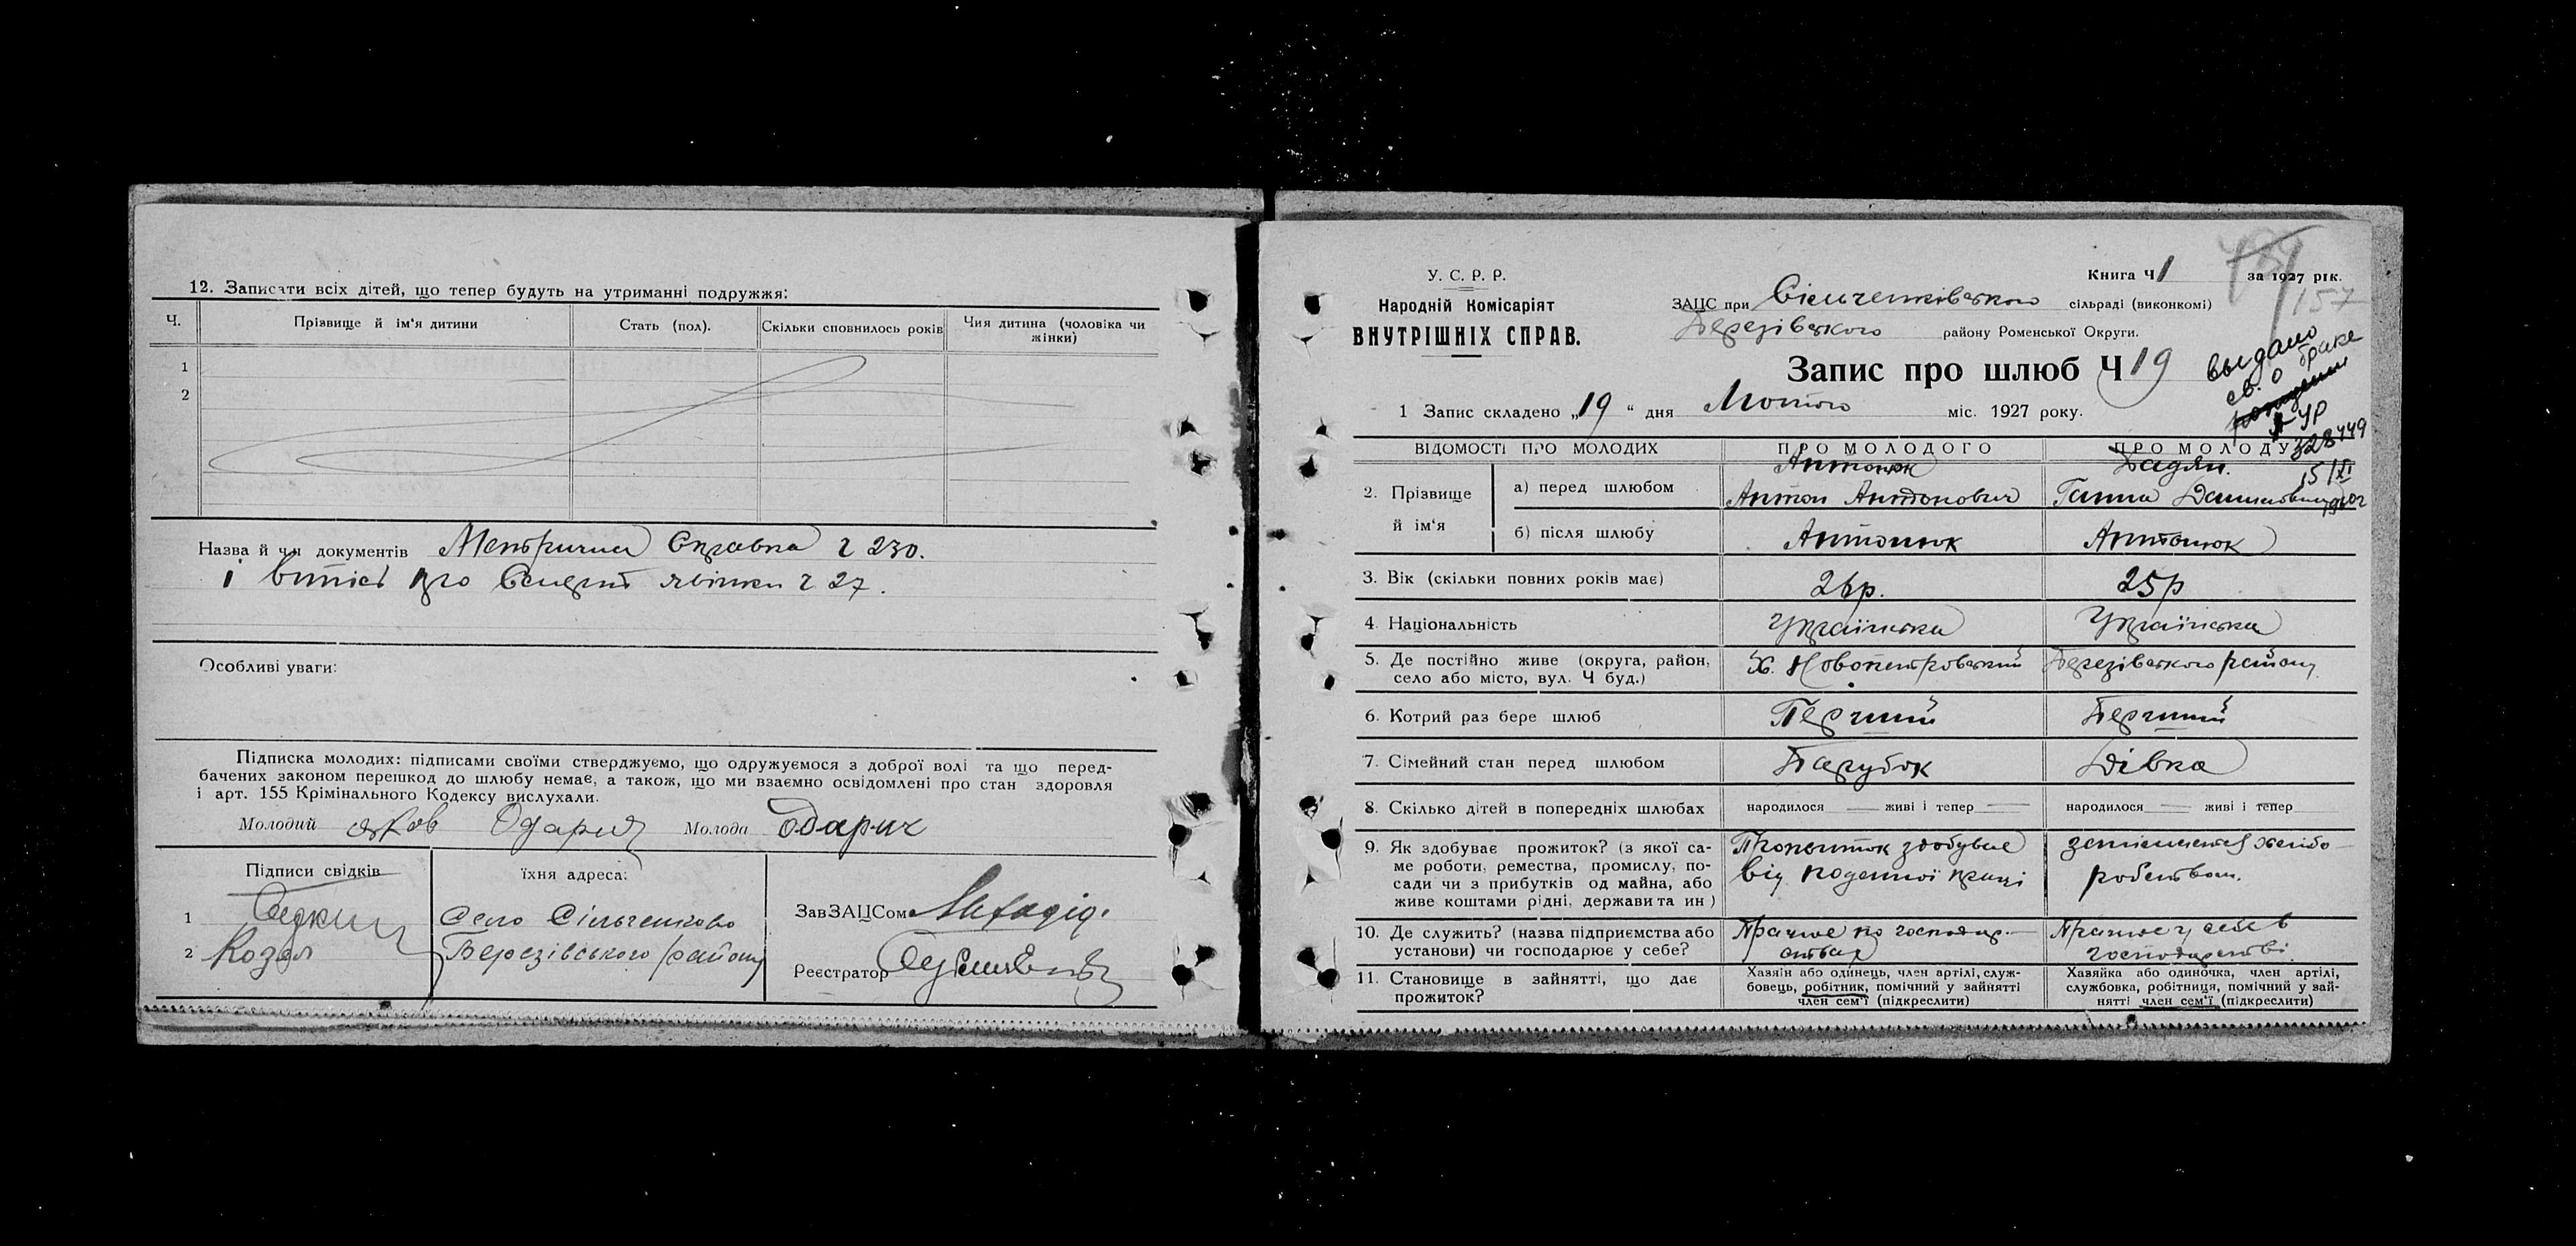 12. Записати всіх дітей, що тепер будуть на утриманні подружжя:
Ч. Прізвище й ім'я дитини Стать (пол). Скільки сповнилось років Чия дитина (чоловіка чи жінки)
1
2
Назва й чч документів Метрична Справка ч 230.
і витіс про ч 27.
Особливі уваги:
Підписка молодих: підписами своїми стверджуємо, що одружуємося з доброї волі та що перед-
бачених законом перешкод до шлюбу немає, а також, що ми взаємно освідомлені про стан здоровля
і арт. 155 Крімінального Кодексу вислухали.
Молодий Яков Одарич Молода Одарич
Підписи свідків їхня адреса:
1 Село Сільченково ЗавЗАЦСом
2 Козел Березівського району Реєстратор
У. С. Р. Р.
Народній Комісаріят
ВНУТРІШНІХ СПРАВ.
Книга Ч 1 за 1927 рік.
157
ЗАЦС при Сільченківського сільраді (виконкомі)
Березівського району Роменської Округи.
Запис про шлюб Ч 19
выдано
св. о браке
УР
328449
15/XI
1 Запис складено „19" дня Лютого міс. 1927 року.
ВІДОМОСТІ ПРО МОЛОДИХ ПРО МОЛОДОГО ПРО МОЛОДУ
2. Прізвище й ім'я
а) перед шлюбом Антонюк Антон Антонович Ганна
б) після шлюбу Антонюк Антонюк
3. Вік (скільки повних років має) 26р. 25р
4. Національність Українська Українська
5. Де постійно живе (округа, район, село або місто, вул. Ч буд.) Х. Новопетровський Березівского району
6. Котрий раз бере шлюб Перший Перший
7. Сімейний стан перед шлюбом Парубок Дівка
8. Скілько дітей в попередніх шлюбах народилося — живі і тепер — народилося — живі і тепер
9. Як здобуває прожиток? (з якої са-
ме роботи, ремества, промислу, по-
сади чи з прибутків од майна, або
живе коштами рідні, держави та ин)
здобував від поденної праці
хлібо-
робством.
10. Де служить? (назва підприємства або
установи) чи господарює у себе?
Працює по господар-
ствах
Працює у себе в
господарстві.
11. Становище в зайнятті, що дає
прожиток?
Хазяїн або одинець, член артілі, служ-
бовець, робітник, помічний у зайнятті
член сем'ї (підкреслити)
Хазяйка або одиночка, член артілі,
службовка, робітниця, помічний у зай-
нятті член сем'ї (підкреслити)